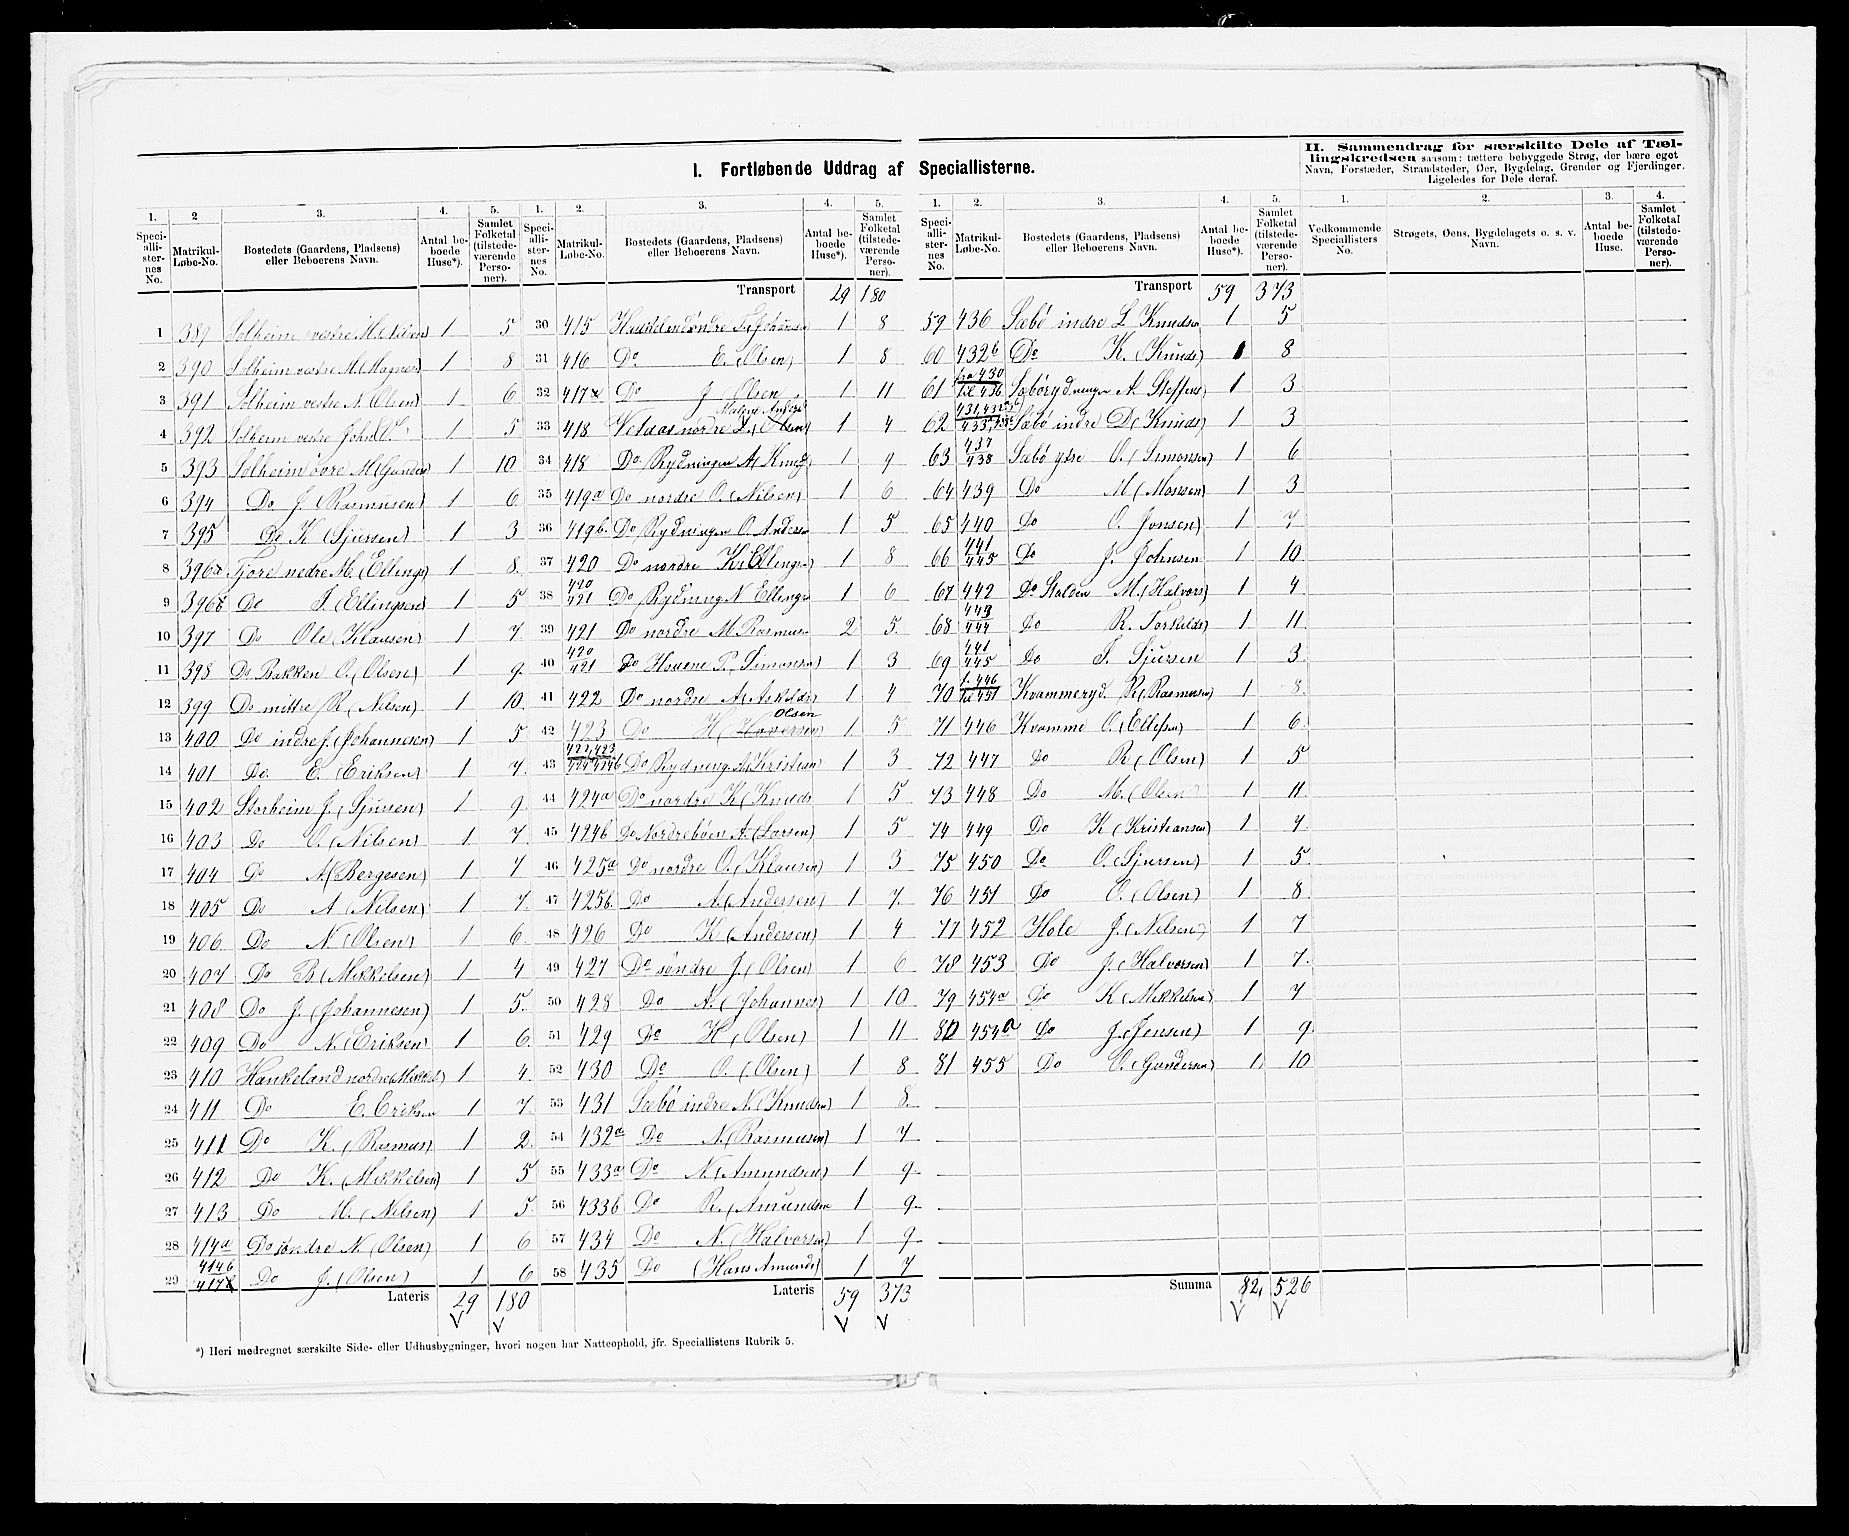 I. Fortløbende Uddrag af Speciallisterne.
II. Sammendrag for særskilte Dele af Tæl-
lingskredsen saasom: tættere bebyggede Strøg, der bære eget
Navn, Forstæder, Strandsteder, Øer, Bygdelag, Grender og Fjerdinger.
Ligeledes for Dele deraf.
1. Speci-alli-ster-nes No. 2 Matrikul-Løbe-No. 3. Bostedets (Gaardens, Pladsens) eller Beboerens Navn. 4. Antal be-boede Huse*). 5. Samlet Folketal (tilstede-værende Perso-ner).
1 389 Solheim vestre M. 1 5
2 390 Solheim vestre M. (Magnes) 1 8
3 391 Solheim vestre N. Olsen) 1 6
4 392 Solheim vestre John 1 5
5 393 Solheim övre M (Gunders 1 10
6 394 Do J. (Rasmusen) 1 6
7 395 Do K (Sjursen) 1 3
8 396a Fjore nedre M. (Ellings) 1 8.
9 396b Do S. (Ellingsen) 1 5
10 397 Do Ole (Klausen) 1 7.
11 398 Do Bakken O. (Olsen) 1 9.
12 399 Do mittre R (Nilsen) 1 10.
13 400 Do indre J. (Johannesen) 1 5
14 401 Do. E. (Eriksen) 1 7.
15 402 Storheim J. (Sjursen) 1 9.
16 403 Do O. (Nilsen) 1 7.
17 404 Do M (Bergesen) 1 7
18 405 Do A (Nilsen) 1 7.
19 406. Do N. (Olsen) 1 6.
20 407 Do B. (Mikkelsen) 1 4
21 408 Do J. (Johannesen) 1 5.
22 409 Do N. (Eriksen) 1 6.
23 410 Haukeland nordre (Mikkel) 1 4.
24 411 Do E. Eriksen 1 7.
25 411 Do K. (Rasmus) 1 2.
26 412 Do K. (Mikkelsen) 1 5
27 413 Do M. (Nilsen) 1 5.
28 414a Do söndre N. (Olsen) 1 6
29 414b 417b Do J. (Olsen) 1 6
Lateris 29 180
1. Speci-alli-ster-nes No. 2. Matrikul-Løbe-No. 3. Bostedets (Gaardens, Pladsens) eller Beboerens Navn. 4. Antal be-boede Huse*). 5. Samlet Folketal (tilstede-værende Perso-ner).
Transport 29 180
30 415 Haukeland söndre Johansen 1 8
31 416 Do E. (Olsen) 1 8
32 417a Do J (Olsen 1 11
33 418 nordre Olsen) 1 4
34 418 Do. Rydningen A (Knud) 1 9
35 419a Do nordre O. (Nilsen) 1 6
36 419b. Do Rydningen O. Andersen 1 5
37 420 Do nordre K. (Ellingsen) 1 8
38 420 421 Do Rydning N Ellingsen 1 6
39 421 Do nordre M Rasmusen 2 5.
40 420 421 Do P. Simonsen) 1 3
41 422 Do nordre A (Askilds) 1 4
Olsen
42 423 Do H (Haversen) 1 5
43 422,423 Do Rydning (Kristian) 1 3
44 424a Do nordre K (Knuds 1 5
45 424b Do Nordreböen A. (Larsen) 1 5
46 425a Do nordre O. (Klausen) 1 3
47 425b. Do A. (Andersen) 1 7.
48 426 Do K (Andersen) 1 4
49 427 Do söndre J. (Olsen) 1 6
50 428 Do A. (Johannes) 1 10
51 429 Do H (Olsen) 1 11
52 430 Do O. (Olsen) 1 8
53 431 Sæbö indre N. (Knudsen) 1 8.
54 432a Do N. (Rasmusen) 1 7
55 433a Do N. (Amundsen) 1 9.
56 433b Do R. (Amundsen 1 9.
57 434 Do N. (Halvorsen) 1 9.
58 435 Do (Hans Amunds) 1 7
Lateris 59 373
1. Speci-alli-ster-nes No. 2. Matrikul-Løbe-No. 3. Bostedets (Gaardens, Pladsens) eller Beboerens Navn. 4. Antal be-boede Huse*). 5. Samlet Folketal (tilstede-værende Perso-ner).
Transport 59 373
59 436 Sæbö indre L Knudsen 1 5
60 432b Do K. (Knuds) 1 8
61 fra 430 til 436 Sæböerydningen A Steffens) 1 3
62 431,432 Sæbö indre D. (Knuds) 1 3
63 437 438 Sæbö ytre O. (Simonsen) 1 6
64 439 Do M (Monsen) 1 3
65 440 Do O. Jonsen) 1 7
66 441 445 Do J. Johnsen 1 10
67 442 Do Stölen M. (Halvors) 1 4
68 443 444 Do R. Torkilds) 1 11
69 441 445 Do S. Sjursen 1 3
70 f. 446 til 451 Kvammeryd. R. (Rasmusen) 1 8.
71 446 Kvamme O. (Ellefsen) 1 6.
72 447 Do R (Olsen) 1 5
73 448 Do M. (Olsen) 1 11
74 449 Do K (Kristiansen) 1 7.
75 450 Do O. (Sjursen) 1 5.
76 451 Do O. (Olsen) 1 8
77 452 Hole J. (Nilsen) 1 7
78 453 Do J. (Halvorsen) 1 7.
79 454a Do K (Mikkelsen) 1 7
80 454a Do J. (Jensen) 1 9.
81 455 Do O. (Gundersen) 1. 10
Summa 82, 526
1. Vedkommende Speciallisters No. 2. Strøgets, Øens, Bygdelagets o. s. v. Navn. 3. Antal be-boede Huse. 4. Samlet Folketal (tilstede-værende Perso-ner).
*) Heri medregnet særskilte Side- eller Udhusbygninger, hvori nogen har Natteophold, jfr. Speciallistens Rubrik 5.